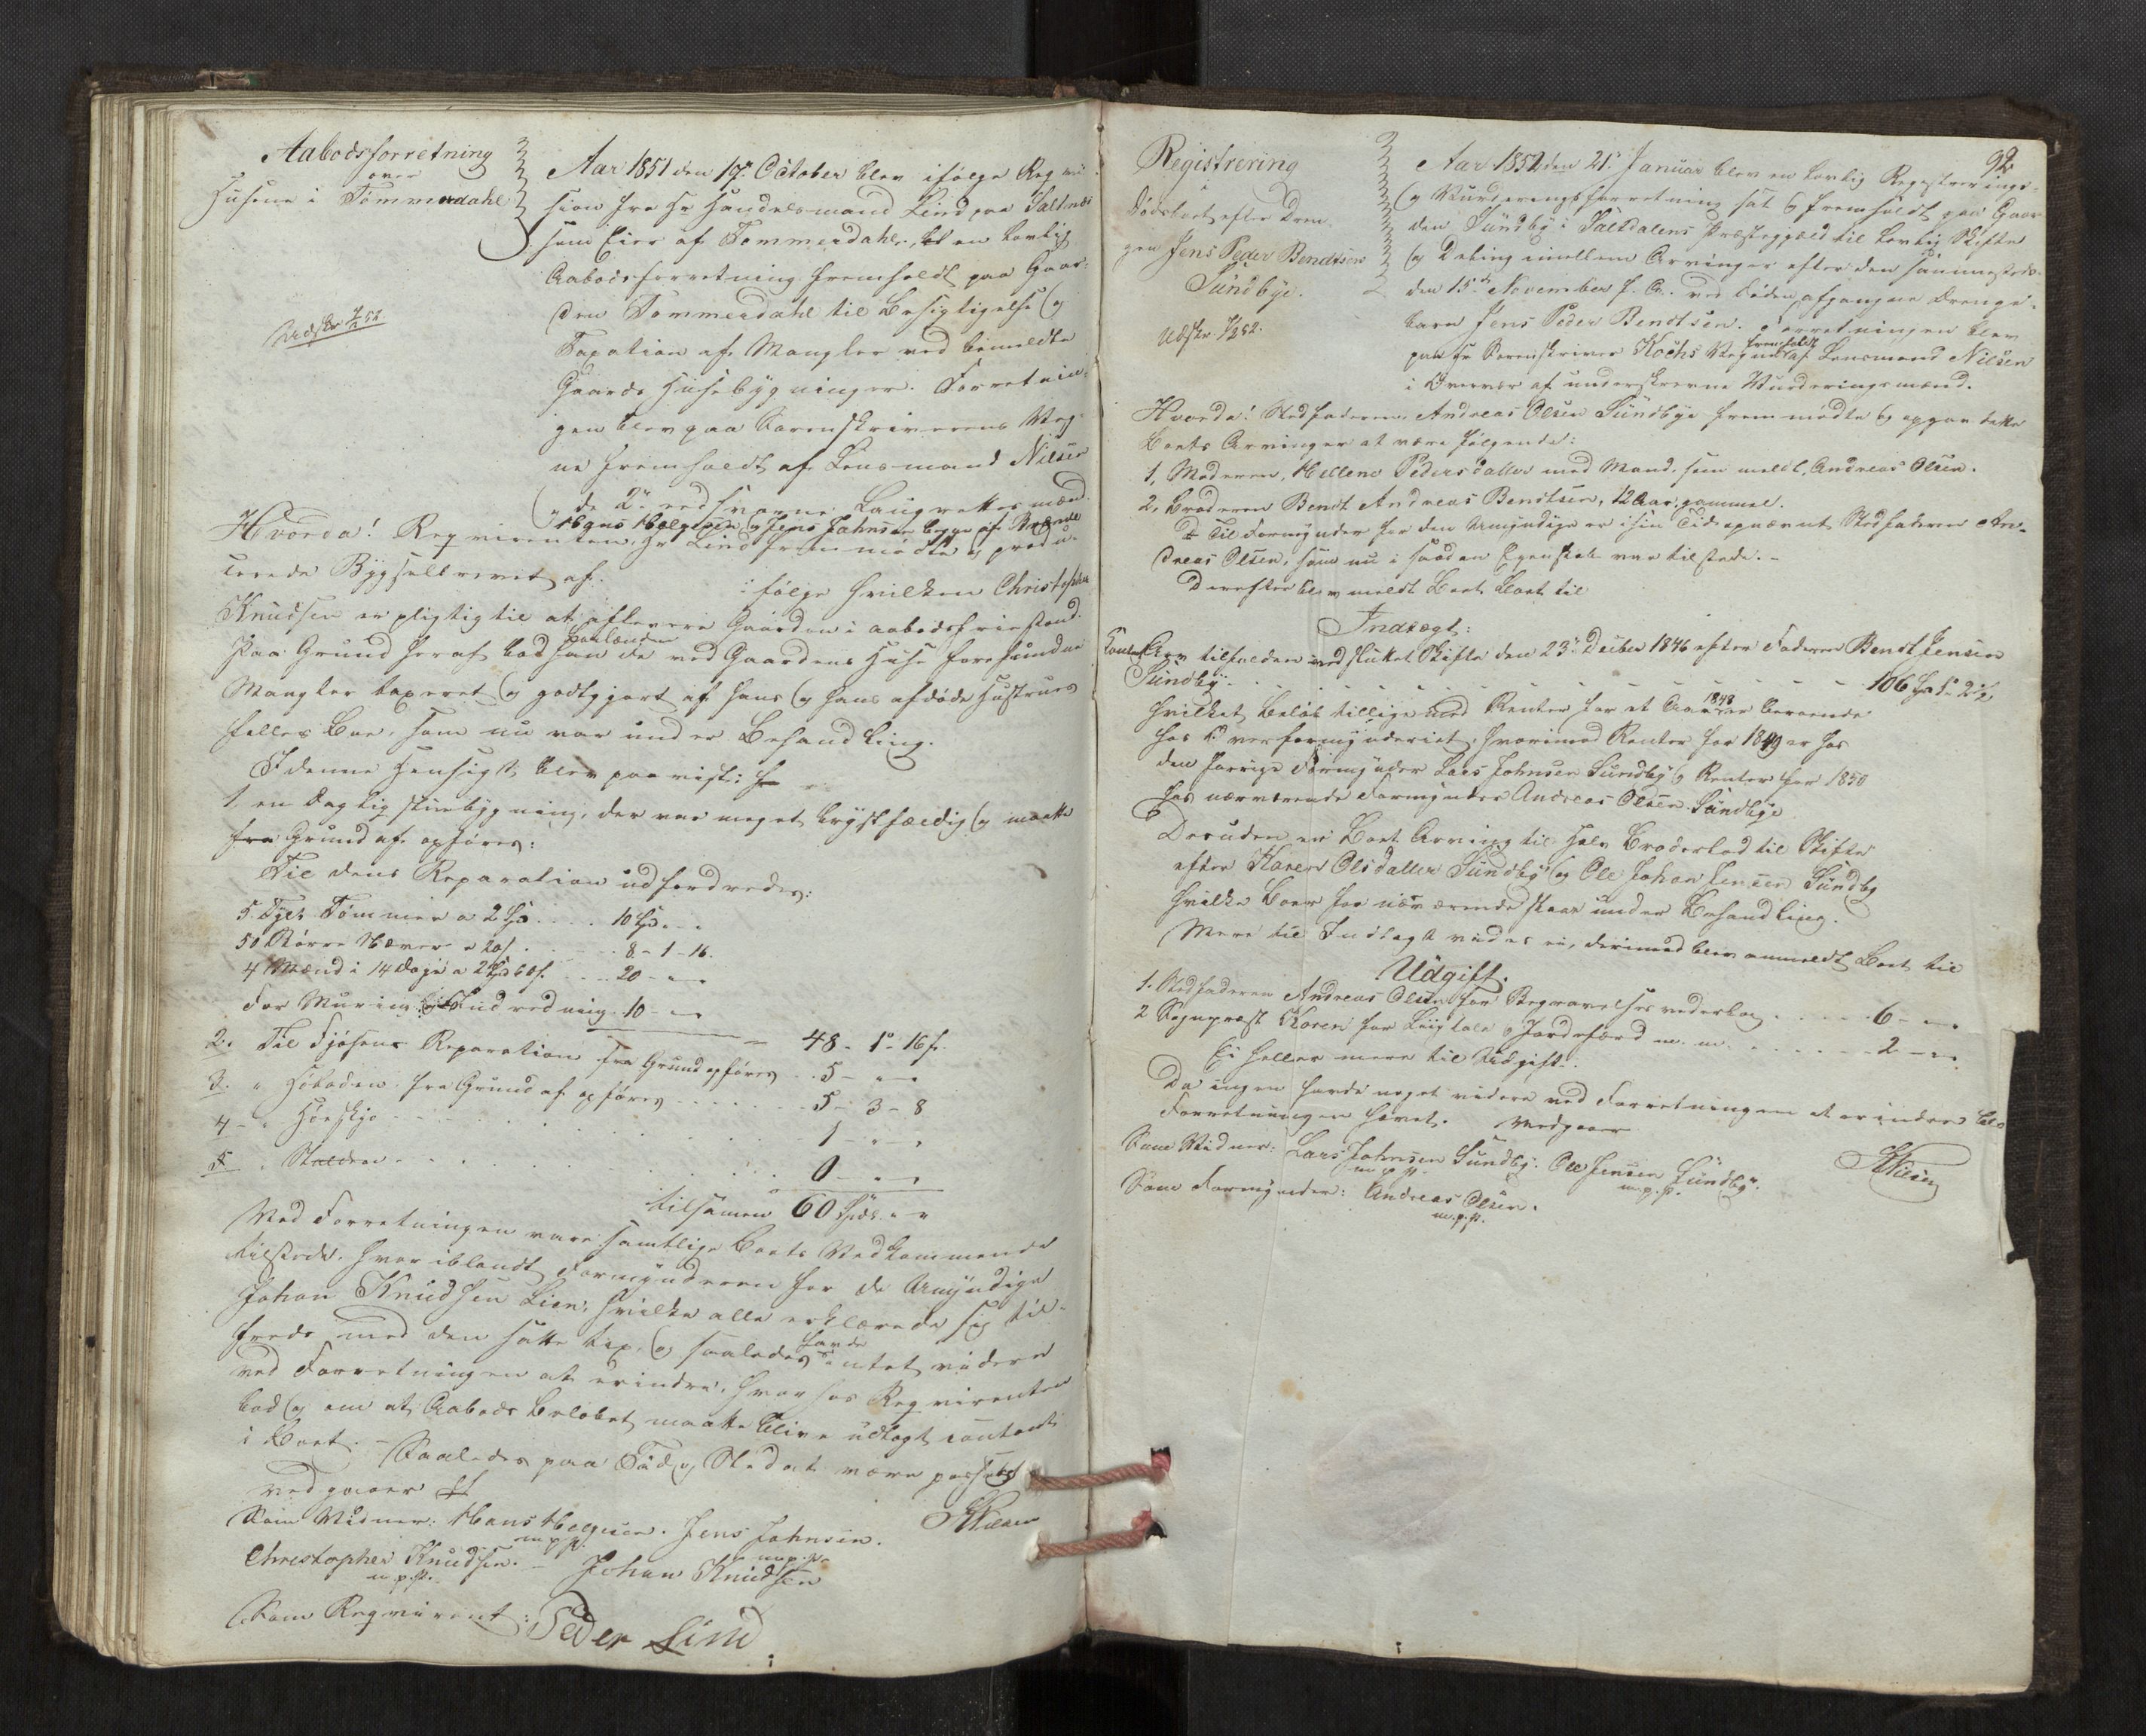 Aabodsforretning
over
Husene i Tommerdahl
Udskr. 7/1 52
Aar 1851 den 17de October blev ifølge Reqvi-
sition fra Hr Handelsmand Lind paa Saltnæs
som Eier af Tommerdahl, en lovlig
Aabodsforretning fremholdt paa Gaar-
den Tommerdahl til Besigtigelse og
Taxation af Mangler ved bemeldte
Gaards Husebygninger. Forretnin-
gen blev paa Sorenskriverens Veg-
ne fremholdt af Lensmand Nilsen
og de 2de edsvorne Laugrettesmænd
Hans Helgesen og Jens Johnsen begge af
Hvorda! Reqvirenten, Hr Lind fremmødte og produ-
cerede Bygselbrevet af: i følge hvilken Christopher
Knudsen er pligtig til at aflevere Gaarden i aabodsfrie Stand.
Paa Grund heraf bad han de ved Gaardens Huse forefundne
Mangler taxeret og godtgjort af hans og hans afdøde Hustrues
fælles Boe, som nu var under Behandling.
I denne Hensigt blev paavist:
1. en Daglig stuebygning, der var meget brystfældig og maatte
fra Grund af opføres:
Til dens Reparation udfordredes:
5 Tylt Tømmer a 2 Spd . . . 10 Spd " "
50 Vorre Næver a 20 s . . . 8 - 1 - 16.
4 Mænd i 14 Dage a 2 Spd 60 s. . . 20 - " -
For Murin Indredning 10 - " -
48 - 1 - 16 s.
2. Til Fjøsens Reparation fra Grund opføres . . 5 - " -
3. " Høboden fra Grund af opføres . . . . 5 - 3 - 8
4 - " Hørskjo . . . . 1 - " -
5 " Stalden . . . . 0 - " -
tilsamen 60 Spdr. " "
Ved Forretningen vare samtlige Boets Vedkommende
tilstede, hvoriblandt Formynderen for de Umyndige
Johan Knudsen Lien, hvilke alle erklærede sig til-
freds med den satte Tax, og saaledes havde intet videre
ved Forretningen at erindre, hvorhos Reqvirenten
bad og om at Aabods Beløbet maatte blive udlagt contant
i Boet. - Saaledes paa Tid og Sted at være passeret
vedgaaer
Som Vidner: Hans Helgesen. Jens Johnsen.
m.p.p. m.p.p.
Nilsen
Christopher Knudsen. - Johan Knudsen
m.p.p.
Som Reqvirent: Peder Lind
92
Registrering
Dødsboet efter Dren-
gen Jens Peder Bendtsen
Sundbye.
Udskr. 7/2 52.
Aar 1852 den 21de Januar blev en lovlig Registrerings-
og Vurderingsforretning sat og fremholdt paa Gaar-
den Sundby i Saltdalens Præstegjæld til lovlig Skifte
og Deling imellem Arvinger efter den sammesteds
den 15de November f. A. ved Døden afgangne Drenge-
barn Jens Peder Bendtsen. Forretningen blev
paa Hr Sorenskriver Kochs Vegne fremholdt af Lensmand Nilsen
i Overvær af underskrevne Vurderingsmænd.
Hvorda! Stedfaderen, Andreas Olsen Sundbye fremmødte og opgav dette
Boets Arvinger at være følgende:
1, Moderen, Hellene Pedersdatter med Mand, som meldt, Andreas Olsen.
2, Broderen Bendt Andreas Bendtsen, 12 Aar gammel.
Til Formynder for den Umyndige er i sin Tid opnævnt Stedfaderen An-
dreas Olsen, som nu i saadan Egenskab var tilstede. -
Derefter blev meldt Boet til
Indtægt:
Contant Arv tilfalden ved sluttet Skifte den 23de Decbr 1846 efter Faderen Bendt Jensen
Sundby . . . . 106 Spd 1 - 2 s.
hvilket Beløb tillige med Renter for et Aar 1848 er beroende
hos Overformynderiet, hvorimod Renter for 1849 er hos
den forrige Formynder Lars Johnsen Sundby og Renter for 1850
hos nærværende Formynder Andreas Olsen Sundbye
Desuden er Boet Arving til halv Broderlod til Skifte
efter Karen Olsdatter Sundby og Ole Johan Jensen Sundby
hvilke Boer for nærværende staar under Behandling.
Mere til Indtægt vides ei, derimod blev anmeldt Boet til
Udgift.
1. Stedfaderen Andreas Olsen for Begravelses vederlag . . . . 6 - " -
2 Sognepræst Koren for Liigtale og Jordefærd m. m. . . . . 2 - " -
Ei heller mere til Udgift.
Da ingen havde noget videre ved Forretningen at erindre blev
Forretningen hævet. Vedgaaer
Som Vidner: Lars Johnsen Sundby. Ole Jensen Sundby.
m.p.p. m.p.p.
Nilsen
Som Formynder: Andreas Olsen.
m.p.p.